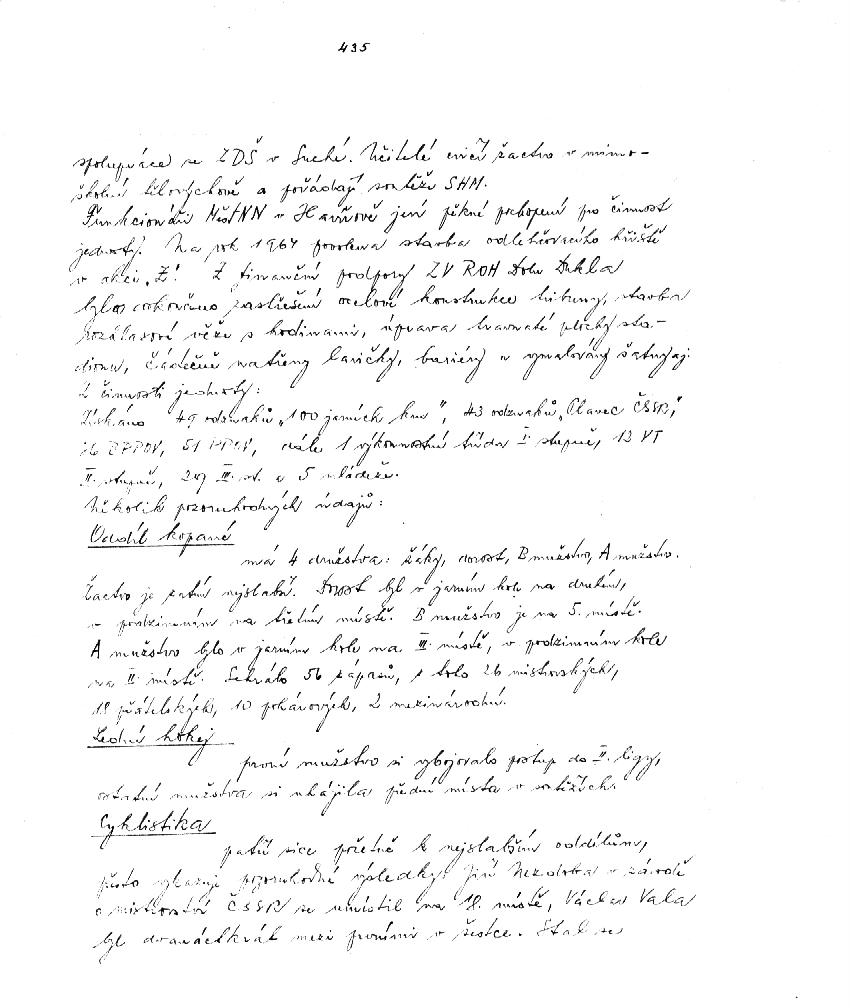 435
spolupráce se ZDŠ v Suché. Učitelé cvičí žactvo v mimo-
školní tělovýchově a pořádají soutěže SHM.
Funkcionáři MěstNV v Havířově jeví pěkné pochopení po činnost
jednoty. Na rok 1967 povolena stavba odlehčovacího hřiště
v akci „Z". Z finanční podpory ZV ROH Dolu Dukla
bylo dokončeno zastřešení ocelové konstrukce tribuny, stavba
rozhlasové věže s hodinami, úprava travnaté plochy sta-
dionu, částečně natřeny lavičky, bariéry a vymalovány šatny aj.
Z činnosti jednoty:
Získáno 49 odznaků „100 jarních km", 43 odznaků „Plavec ČSSR",
26 BPPOV, 51 PPOV, dále 1 výkonnostní třída I. stupně, 13 VT
II. stupně, 247 III. st. a 5 mládeže.
Několik pozoruhodných údajů:
Oddíl kopané
má 4 družstva: žáky, dorost, B mužstvo, A mužstvo.
Žactvo je zatím nejslabší. Dorost byl v jarním kole na druhém,
v podzimním na třetím místě. B mužstvo je na 5. místě.
A mužstvo bylo v jarním kole na III. místě, v podzimním kole
na II. místě. Sehrálo 56 zápasů, z toho 26 mistrovských,
18 přátelských, 10 pohárových, 2 mezinárodní.
Lední hokej
první mužstvo si vybojovalo postup do II. ligy,
ostatní mužstva si uhájila přední místa v soutěžích.
Cyklistika
patří sice početně k nejslabším oddílům,
přesto vykazuje pozoruhodné výsledky. Jiří Nezdoba v závodě
o mistrovství ČSSR se umístil na 18. místě, Václav Vala
byl dvanáctkrát mezi prvními v šestce. Stal se